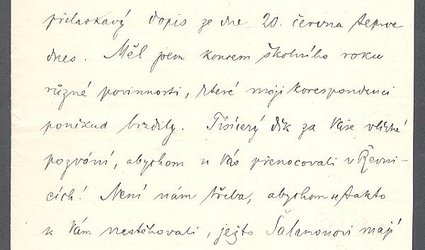 přelaskavý dopis ze dne 20. června teprve
dnes. Měl jsem koncem školního roku
různé povinnosti, které moji korespondenci
poněkud brzdily. Tisícerý dík za Vaše vlídné
pozvání, abychom u Vás přenocovali v Řevni-
cích! Není nám třeba, abychom se
k Vám nastěhovali, ježto Šalamonovi mají